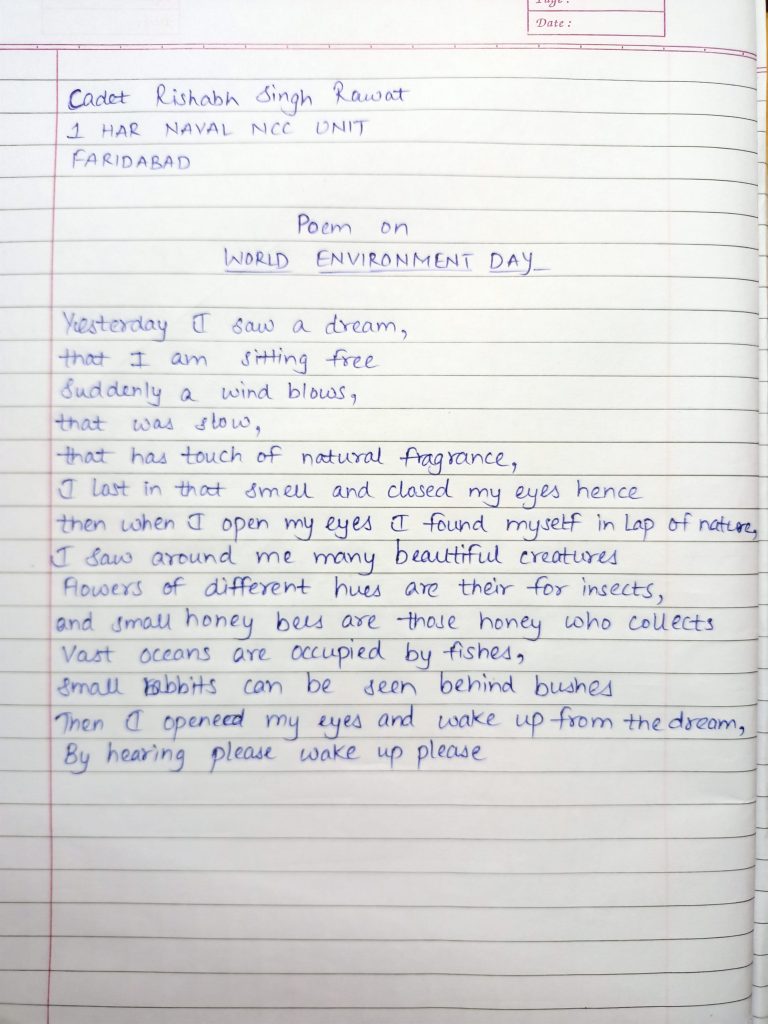 Page :
Date :
Cadet Rishabh Singh Rawat
1 HAR NAVAL NCC UNIT
FARIDABAD
Poem on
WORLD ENVIRONMENT DAY
Yesterday I saw a dream,
that I am sitting free
Suddenly a wind blows,
that was slow,
that has touch of natural fragrance,
I lost in that smell and closed my eyes hence
then when I open my eyes I found myself in Lap of nature,
I saw around me many beautiful creatures
Flowers of different hues are their for insects,
and small honey bees are those honey who collects
Vast oceans are occupied by fishes,
Small rabbits can be seen behind bushes
Then I openeed my eyes and wake up from the dream,
By hearing please wake up please